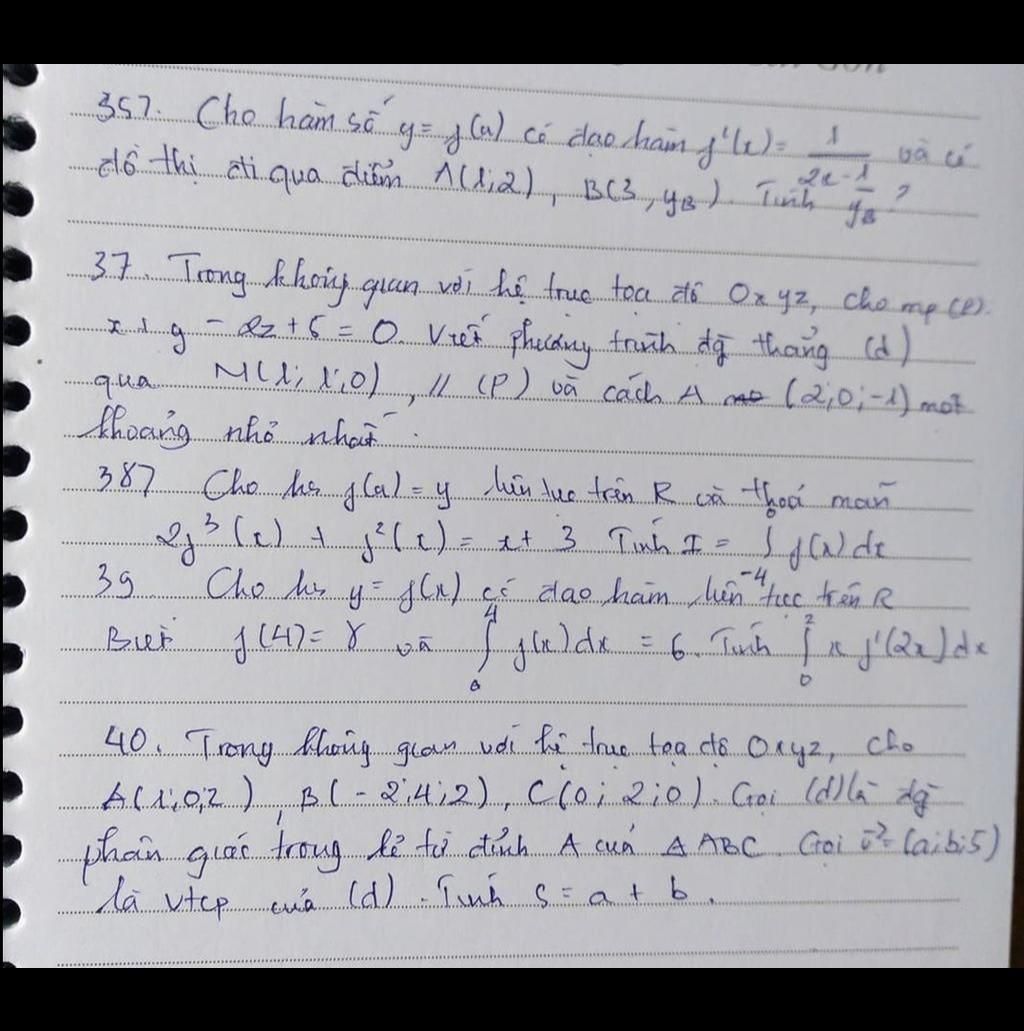 357. Cho hàm số y = f(x) có đạo hàm f'(x) = 1/(2x-1) và có
đồ thị đi qua điểm A(1;2), B(3, yB). Tính 1/yB?
37. Trong không gian với hệ trục tọa độ Oxyz, cho mp (P).
x + y - 2z + 6 = 0. Viết phương trình đg thẳng (d)
qua M(1; 1; 0), // (P) và cách A (2;0;-1) một
khoảng nhỏ nhất.
387 Cho hs f(x) = y liên tục trên R và thoả mãn
2f³(x) + f²(x) = x + 3 Tính I = ∫ f(x) dx
-4
39 Cho hs y = f(x) có đạo hàm liên tục trên R
Biết f(4) = 8 và ∫₀⁴ f(x)dx = 6. Tính ∫₀² x f'(2x) dx
40. Trong không gian với hệ trục tọa độ Oxyz, cho
A(1;0;2), B(-2;4;2), C(0;2;0). Gọi (d) là đg
phân giác trong kẻ từ đỉnh A của Δ ABC. Gọi = (a;b;5)
là vtcp của (d). Tính S = a + b.